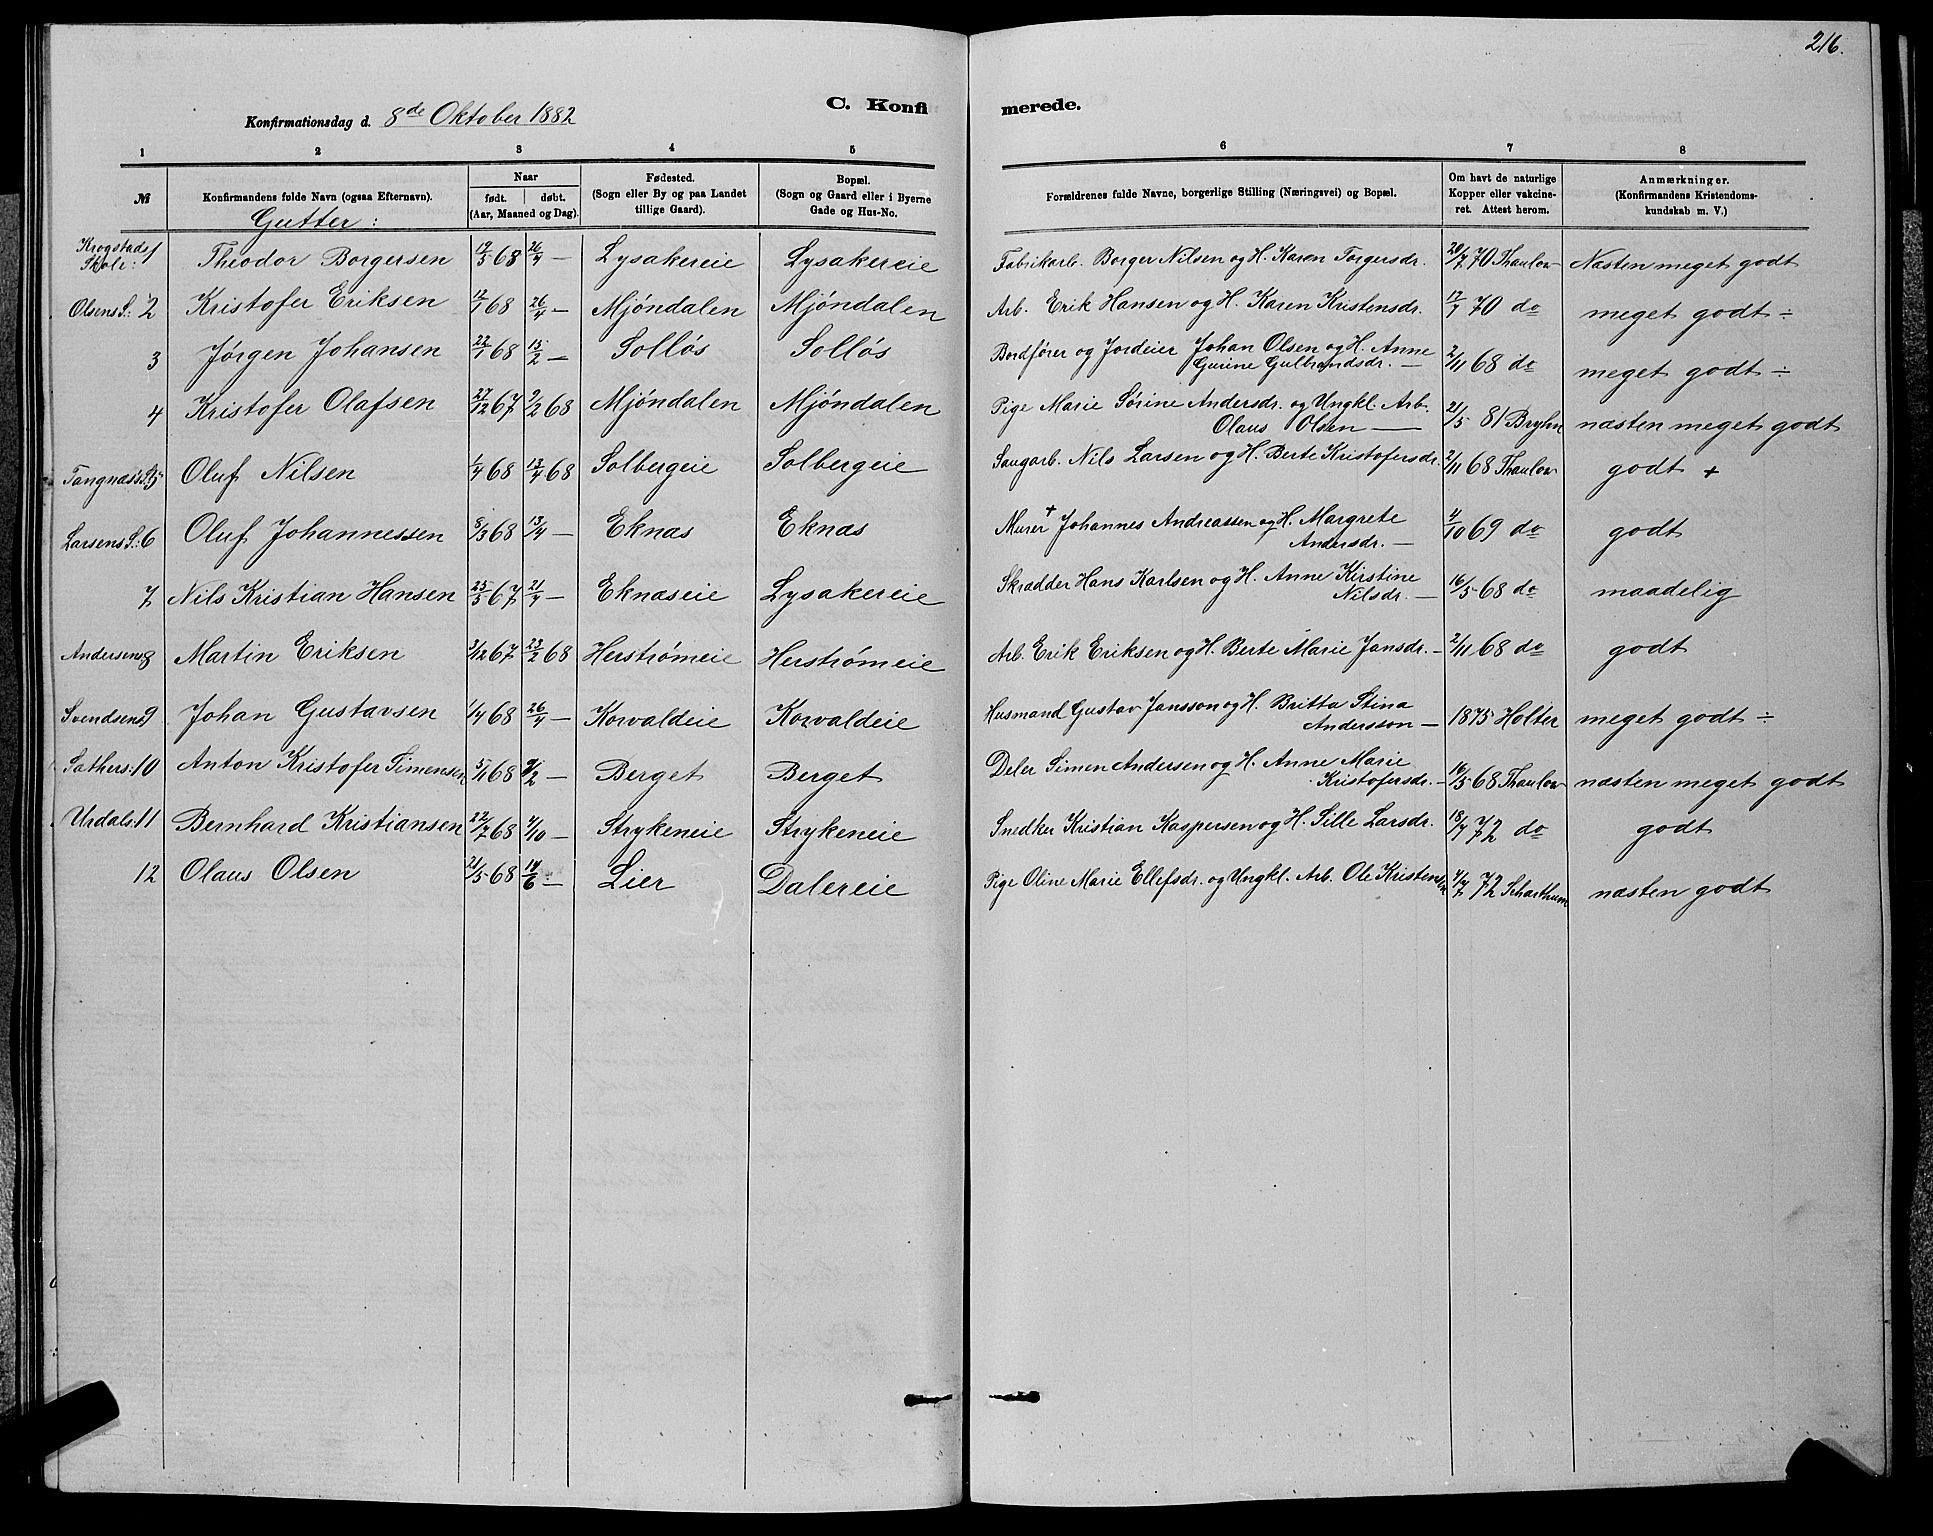 216.
C. Konfi merede.
Konfirmationsdag d. 8de Oktober 1882
1 2 3 4 5 6 7 8
№ Konfirmandens fulde Navn (ogsaa Efternavn). Naar født. døbt. (Aar, Maaned og Dag). Fødested. (Sogn eller By og paa Landet tillige Gaard). Bopæl. (Sogn og Gaard eller i Byerne Gade og Hus-No. Forældrenes fulde Navne, borgerlige Stilling (Næringsvei) og Bopæl. Om havt de naturlige Kopper eller vakcineret. Attest herom. Anmærkninger. (Konfirmandens Kristendomskundskab m. V.)
Gutter:
Krogstads Skole: 1 Theodor Borgersen 19/3 68 26/4 — Lysakereie Lysakereie Fabrikarb. Borger Nilsen og H. Karen Torgersdr. 20/7 70 Thaulow Næsten meget godt
Olsens S: 2 Kristofer Eriksen 12/1 68 26/4 — Mjøndalen Mjøndalen Arb. Erik Hansen og H. Karen Kristensdr. 17/7 70 do meget godt ÷
3 Jørgen Johansen 22/1 68 15/2 — Solløs Solløs Bordfører og Jordeier Johan Olsen og H. Anne Gurine Gulbrandsdr. — 2/11 68 do meget godt ÷
4 Kristofer Olafsen 27/12 67 9/2 68 Mjøndalen Mjøndalen Pige Marie Sørine Andersdr. og Ungkl. Arb. Olaus Olsen — 21/5 81 Bryhn næsten meget godt
Tangnæs S. 5 Oluf Nilsen 1/4 68 13/4 68 Solbergeie Solbergeie Saugarb. Nils Larsen og H. Berte Kristofersdr. 2/11 68 Thaulow godt +
Larsens S: 6 Oluf Johannessen 8/3 68 13/4 — Eknæs Eknæs Murer + Johannes Andreassen og H. Margrete Andersdr. — 4/10 69 do godt
7 Nils Kristian Hansen 25/5 67 21/7 — Eknæseie Lysakereie Skrædder Hans Karlsen og H. Anne Kirstine Nilsdr. — 16/5 68 do maadelig
Andersens 8 Martin Eriksen 3/12 67 23/2 68 Herstrømeie Herstrømeie Arb. Erik Eriksen og H. Berte Marie Jansdr. — 2/11 68 do godt
Svendsens 9 Johan Gustavsen 1/4 68 26/4 — Korvaldeie Korvaldeie Husmand Gustav Jansson og H. Britta Stina Andersson — 1875 Holter meget godt ÷
Sathers: 10 Anton Kristofer Simensen 5/1 68 9/2 — Berget Berget Deler Simen Andersen og H. Anne Marie Kristofersdr. — 16/5 68 Thaulow næsten meget godt
Urdals: 11 Bernhard Kristiansen 22/7 68 4/10 — Strykeneie Strykeneie Snedker Kristian Kaspersen og H. Sille Larsdr. 18/7 72 do godt
12 Olaus Olsen 21/5 68 14/6 — Lier Dalereie Pige Oline Marie Ellefsdr. og Ungkl. Arb. Ole Kristensen 4/7 72 Scharthum næsten godt